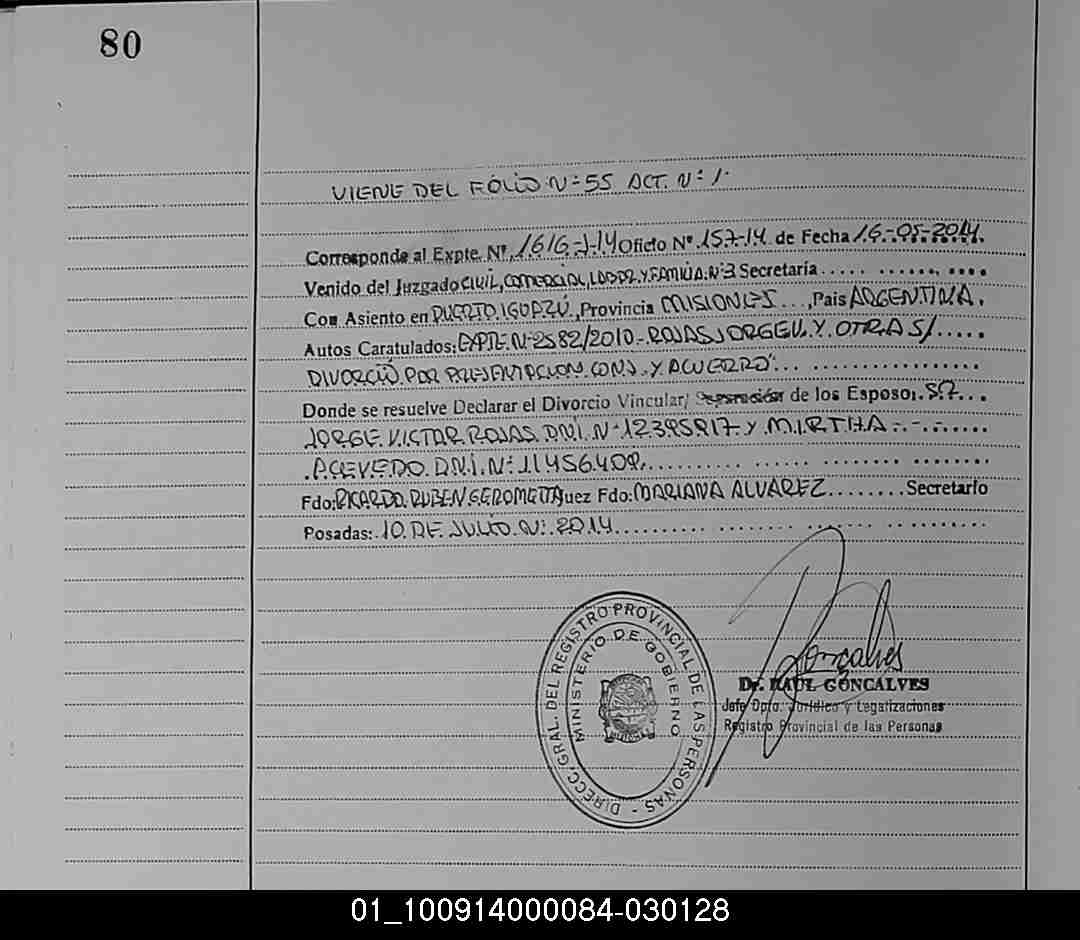 80
VIENE DEL FOLIO Nº 55 ACT. Nº 1.
Corresponde al Expte. Nº 1616-J-14 Oficio Nº 157-14 de Fecha 16-05-2014.
Venido del Juzgado CIVIL, COMERCIAL, LABOR. Y FAMILIA. Nº 3 Secretaría..... ......, ....
Con Asiento en PUERTO IGUAZÚ, Provincia MISIONES ..., País ARGENTINA.
Autos Caratulados: EXPTE. Nº 2582/2010 - ROJAS JORGE V. Y OTRA S/.....
DIVORCIO POR PRESENTACION CONJ. Y ACUERDO"... .................
Donde se resuelve Declarar el Divorcio Vincular/ Separación de los Esposos.
JORGE VICTOR ROJAS D.N.I. Nº 12.395.917 Y MIRTHA
ACEVEDO. D.N.I. Nº 11.456.409.
Fdo: RICARDO RUBEN GEROMETTA Juez Fdo: MARIANA ALVAREZ........Secretario
Posadas: 10 DE JULIO. 2014.
Goncalves
Dr. RAUL GONCALVES
Jefe Dpto. Jurídico y Legalizaciones
Registro Provincial de las Personas
DIRECC. GRAL. DEL REGISTRO PROVINCIAL DE LAS PERSONAS -
MINISTERIO DE GOBIERNO
01_100914000084-030128